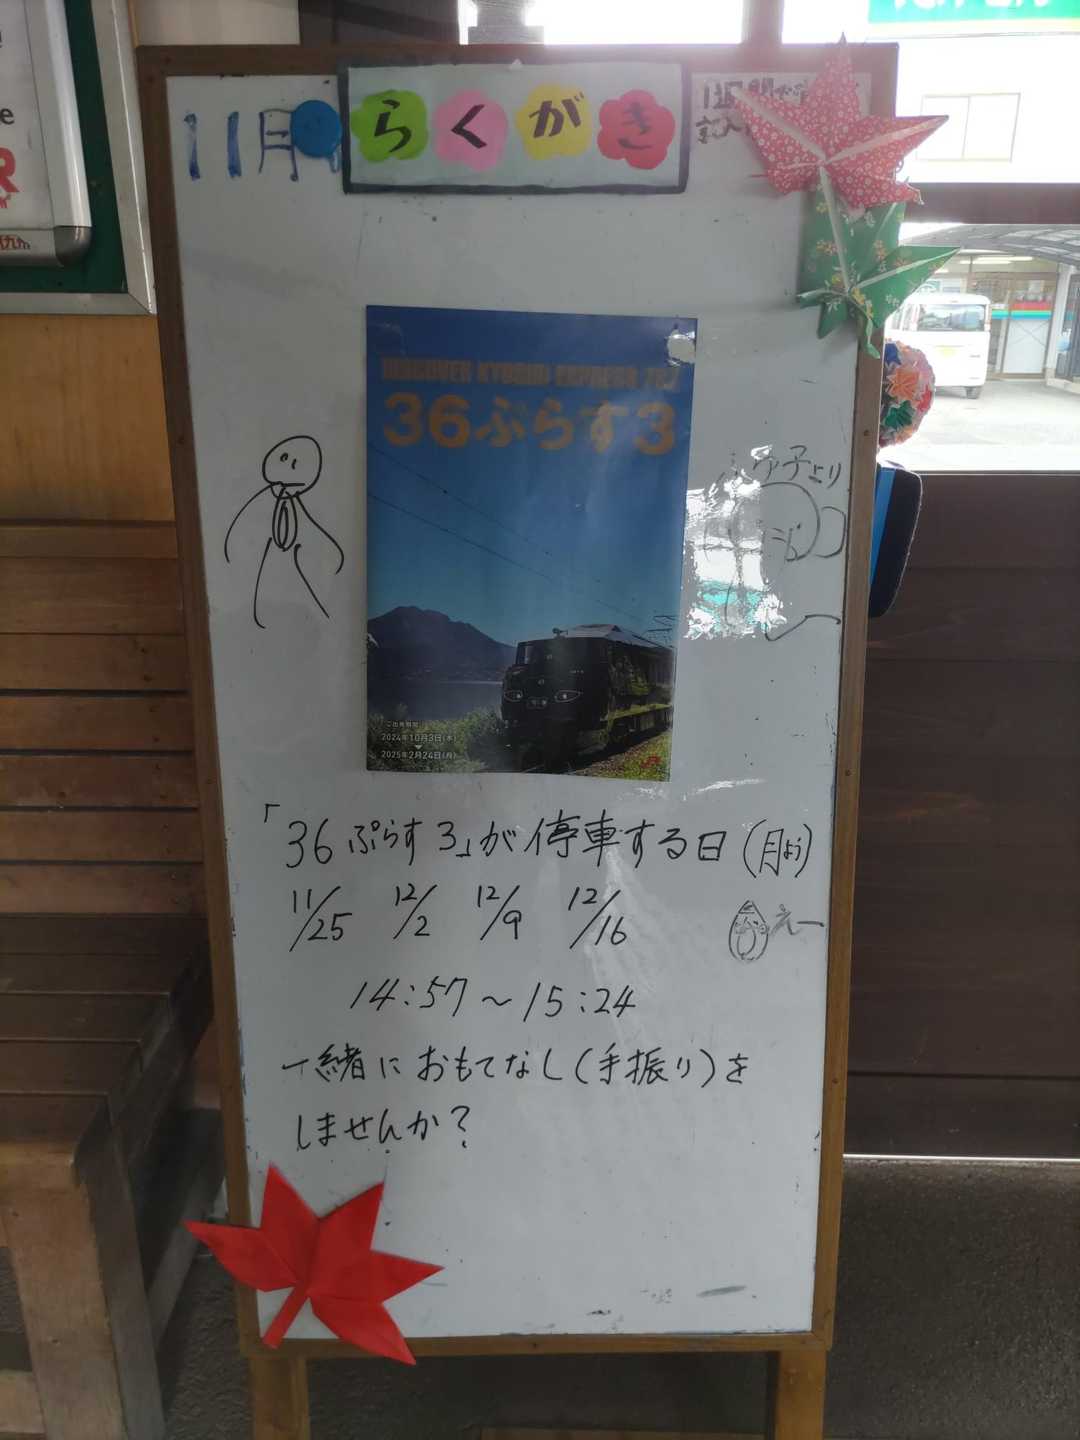 11月
らくがき
DISCOVER KYUSHU EXPRESS 787
36ぷらす3
子より
ご出発期間
2024年10月3日(木)
2025年2月24日(月)
JR
「36ぷらす3」が停車する日(月よう)
11/25 12/2 12/9 12/16
えー
14:57～15:24
一緒におもてなし(手振り)を
しませんか?